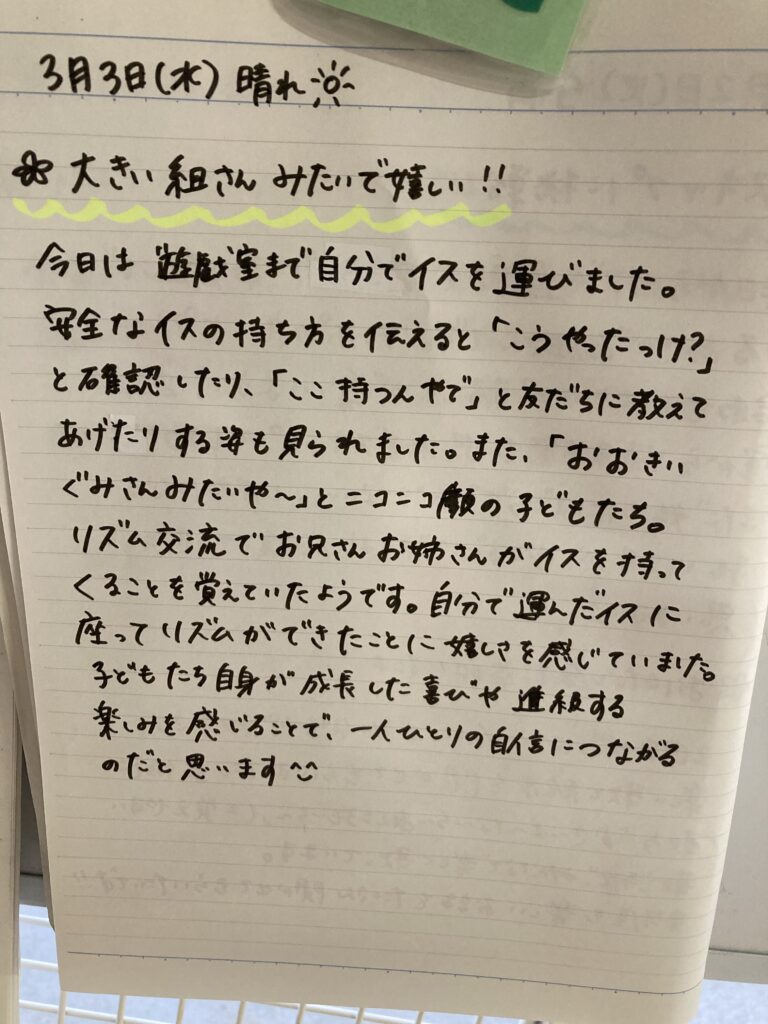 3月3日(水) 晴れ
大きい組さんみたいで嬉しい!!
今日は遊戯室まで自分でイスを運びました。
安全なイスの持ち方を伝えると「こうやったっけ?」
と確認したり、「ここ持つんやで」と友だちに教えて
あげたりする姿も見られました。また、「おおきい
ぐみさんみたいや〜」とニコニコ顔の子どもたち。
リズム交流でお兄さんお姉さんがイスを持って
くることを覚えていたようです。自分で運んだイスに
座ってリズムができたことに嬉しさを感じていました。
子どもたち自身が成長した喜びや進級する
楽しみを感じることで、一人ひとりの自信につながる
のだと思います